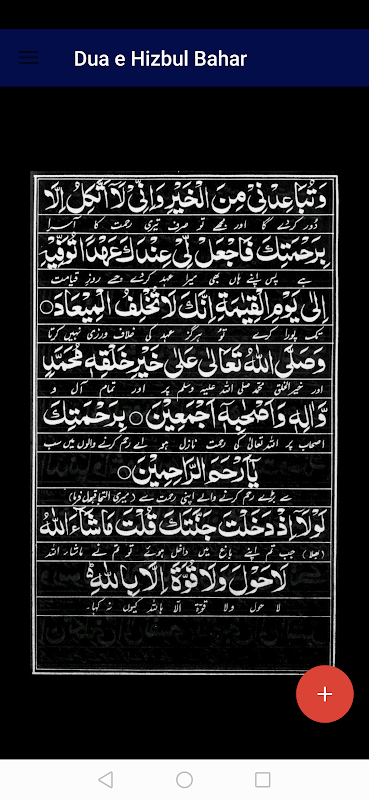 Dua e Hizbul Bahar
وَتُبَاعِدْنِیْ مِنَ الْخَیْرِ وَاِنِّیْ لَآ اَتَّکِلُ اِلَّا
دُور کردے گا اور مجھے تو صرف تیری رحمت کا آسرا
بِرَحْمَتِكَ فَاجْعَلْ لِّیْ عِنْدَكَ عَهْدًا تُوَفِّیْهِ
ہے پس اپنے ہاں بھی میرا عہد کردے جسے روزِ قیامت
اِلٰی یَوْمِ الْقِیٰمَةِ اِنَّكَ لَا تُخْلِفُ الْمِیْعَادَ ○
تک پورا کرے تو ہرگز عہد کی خلاف ورزی نہیں کرتا
وَصَلَّی اللّٰهُ تَعَالٰی عَلٰی خَیْرِ خَلْقِهٖ مُحَمَّدٍ
اور خیر الخلق محمد صلی اللہ علیہ وسلم پر اور تمام آل و
وَّاٰلِهٖ وَاَصْحٰبِهٖ اَجْمَعِیْنَ ○ بِرَحْمَتِكَ
اصحاب پر اللہ تعالیٰ کی رحمت نازل ہو اے رحم کرنے والوں میں سب
یَآ اَرْحَمَ الرَّاحِمِیْنَ ○
سے بڑے رحم کرنے والے اپنی رحمت سے (میری التجا قبول فرما)
لَوْلَآ اِذْ دَخَلْتَ جَنَّتَكَ قُلْتَ مَا شَآءَ اللّٰهُ
(بھلا) جب تم اپنے باغ میں داخل ہوئے تو تم نے ماشاء اللہ
لَا حَوْلَ وَلَا قُوَّةَ اِلَّا بِاللّٰهِ
لا حول ولا قوۃ الا باللہ کیوں نہ کہا۔